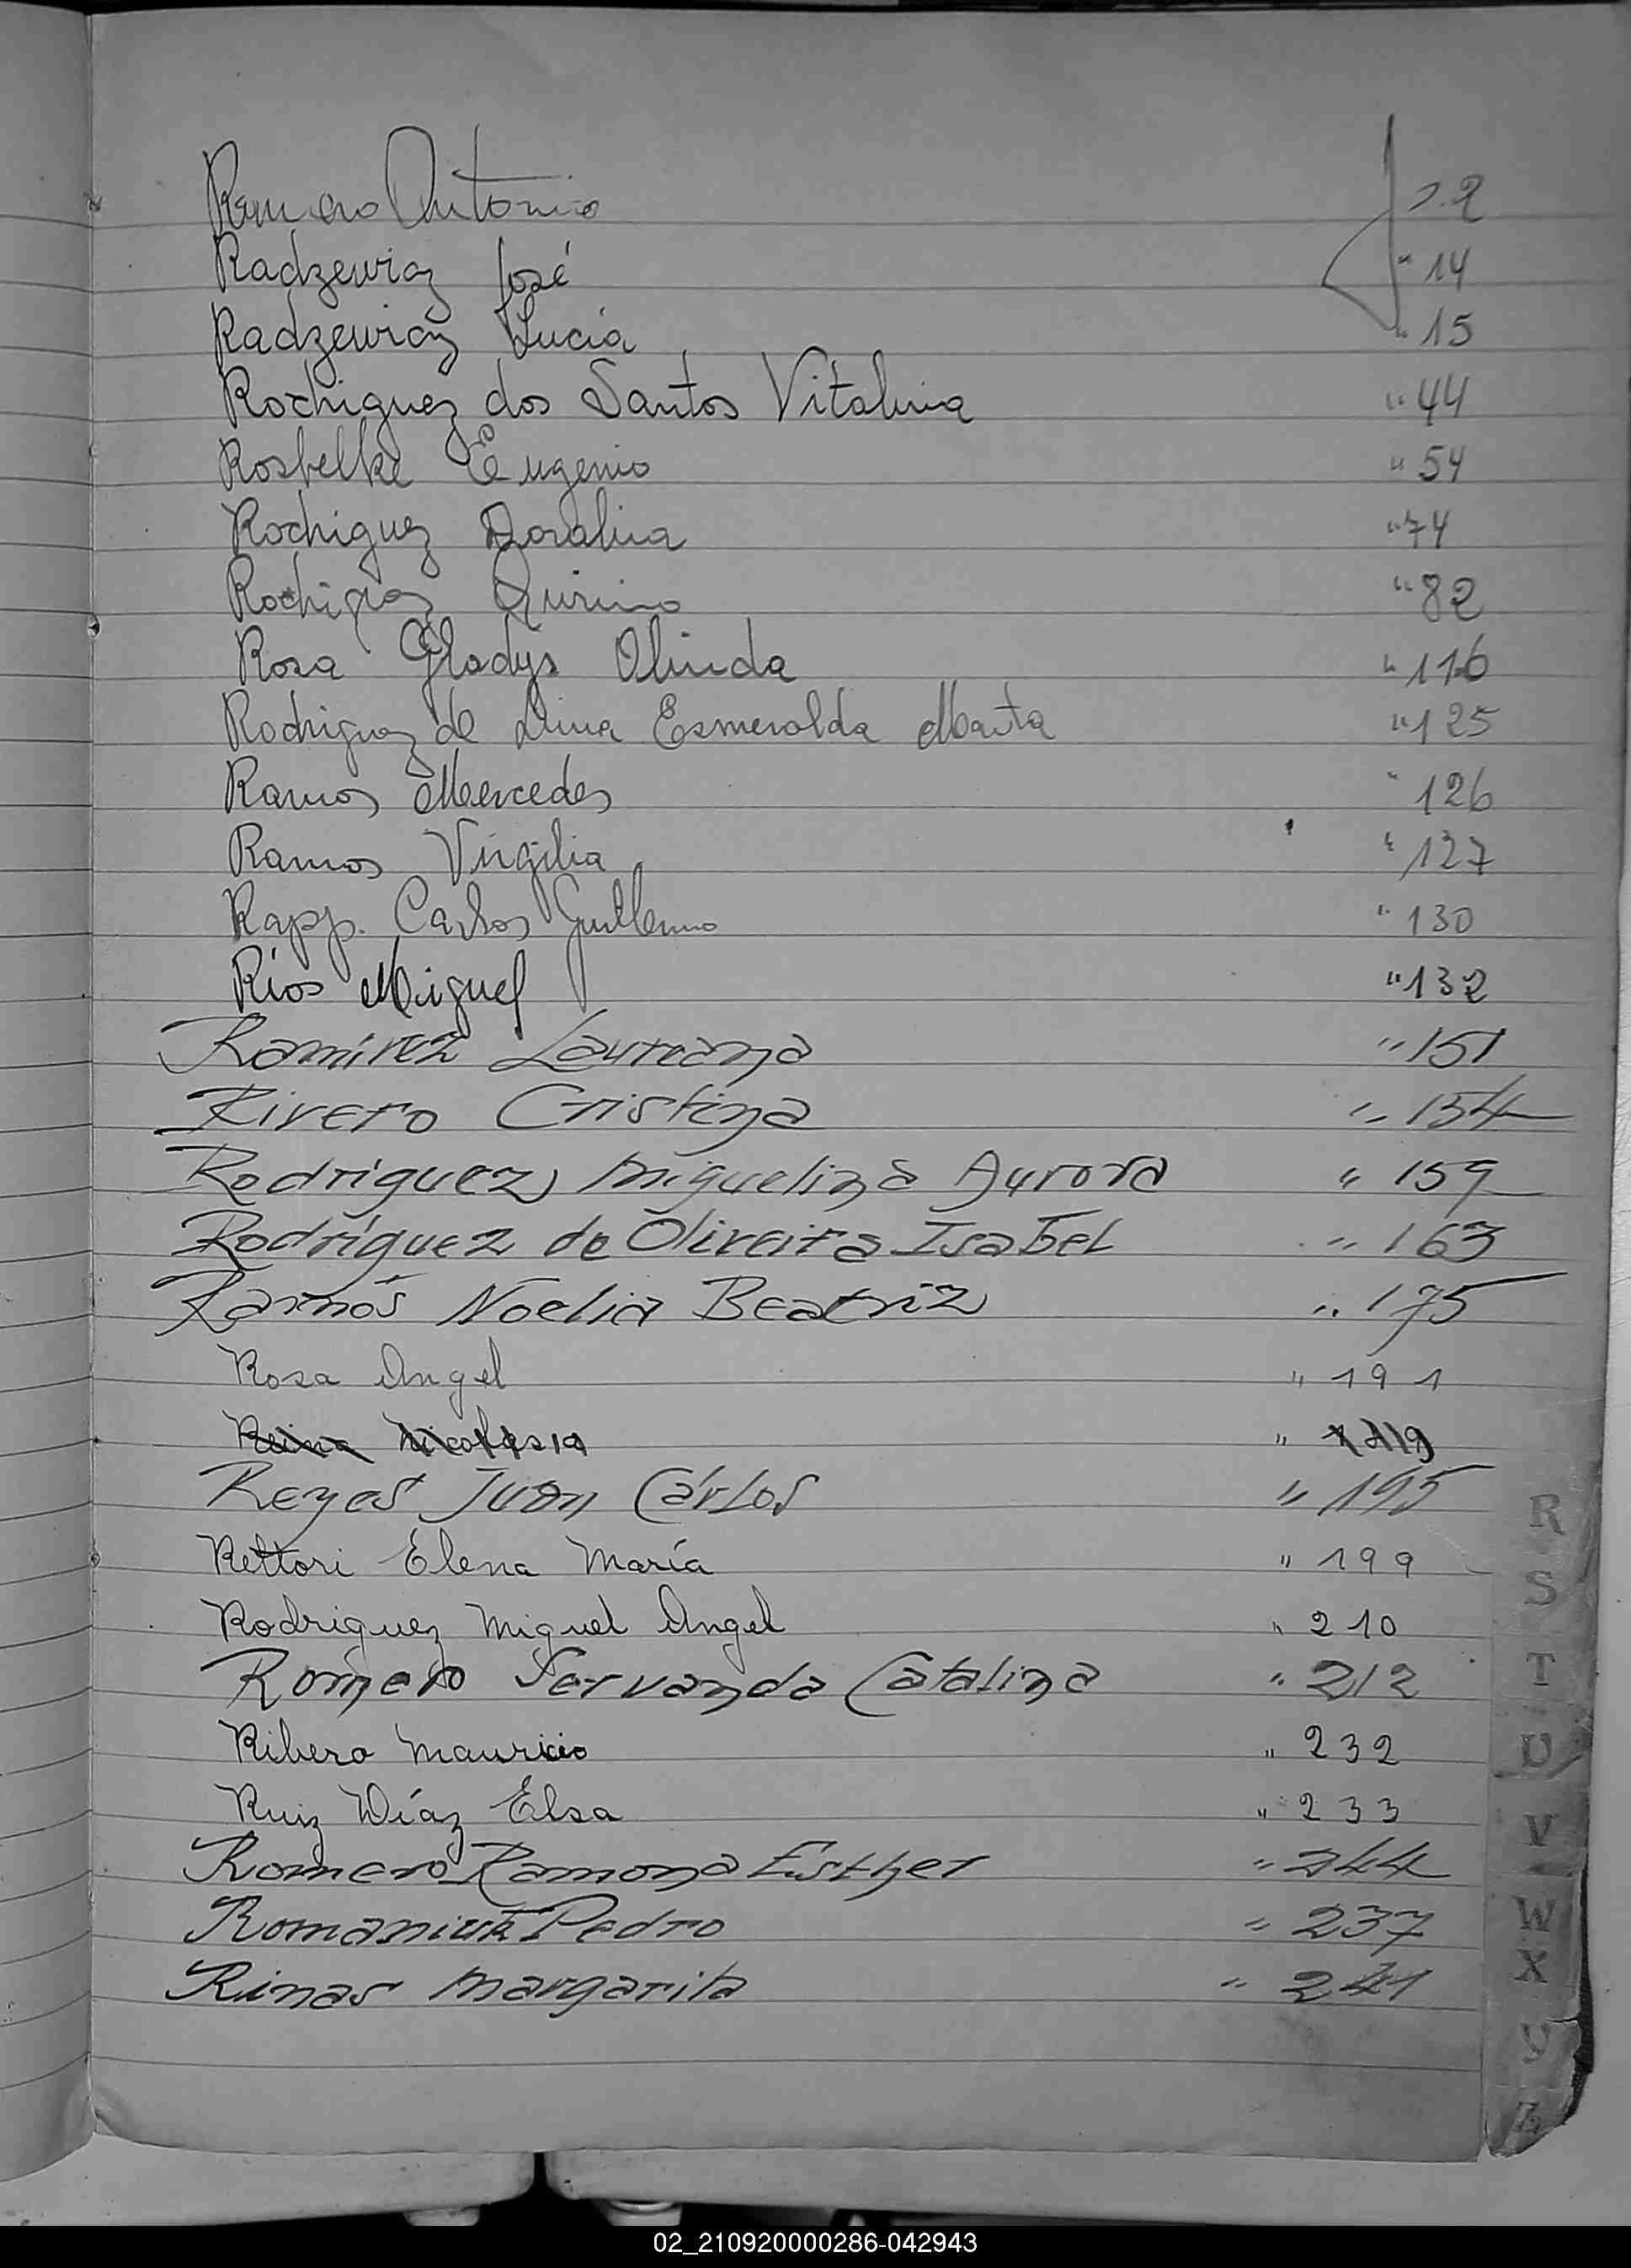 Romero Antonio 2
Radzewicz José " 14
Radzewicz Lucia " 15
Rodriguez dos Santos Vitalina " 44
Eugenio " 54
Rodriguez Doralina " 74
Rodriguez Quirino " 82
Rosa Gladys Olinda " 116
Rodriguez de Lima Esmeralda Marta " 125
Ramos Mercedes " 126
Ramos Virgilia " 127
Rapp. Carlos Guillermo " 130
Ríos Miguel " 132
Ramírez Laureana " 151
Rivero Cristina " 154
Rodríguez Miguelina Aurora " 159
Rodríguez de Oliveira Isabel " 163
Ramos Noelia Beatriz " 175
Rosa Angel " 191
Reina Nicolasia "
Reyes Juan Cárlos " 195
Rettori Elena María " 199
Rodriguez Miguel Angel " 210
Romero Servanda Catalina " 212
Ribero Mauricio " 232
Ruiz Díaz Elsa " 233
Romero Ramona Esther " 244
Romaniuk Pedro " 237
Rinas Margarita " 241
R
S
T
U
V
W
X
Y
Z
02_210920000286-042943